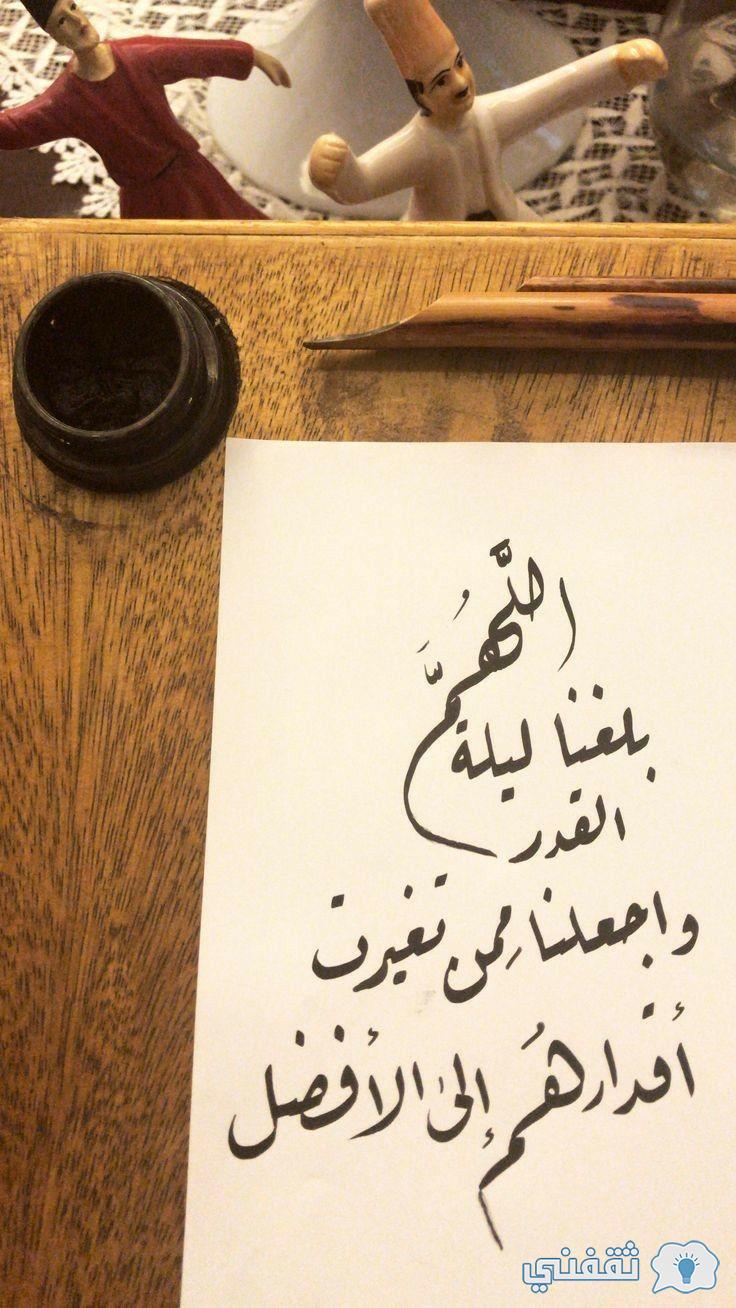 اللَّهُمَّ
بلغنا ليلة
القدر
واجعلنا مِمن تغيرت
أقدارهُم إلى الأفضل
ثقفني